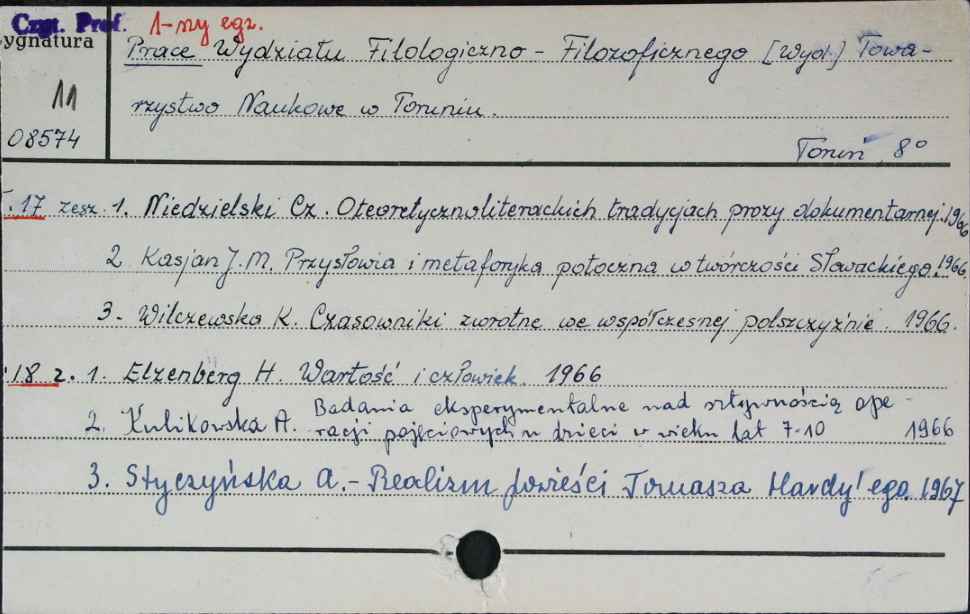 Czyt. Prof. 1-szy egz.
ygnatura
Prace Wydziału Filologiczno - Filozoficznego [Wyd.] Towa-
11
rzystwo Naukowe w Toruniu.
08574
Toruń, 8°
T. 17 zesz. 1. Niedzielski Cz. O teoretycznoliterackich tradycjach prozy dokumentarnej. 1966
2 Kasjan J. M. Przysłowia i metaforyka potoczna w twórczości Słowackiego. 1966.
3. Wilczewska K. Czasowniki zwrotne we współczesnej polszczyźnie. 1966.
18 z. 1. Elzenberg H. Wartość i człowiek. 1966
2. Kulikowska A. Badania eksperymentalne nad sztywnością ope-
racji pojęciowych u dzieci w wieku lat 7-10 1966
3. Styczyńska A. - Realizm powieści Tomasza Hardy'ego. 1967